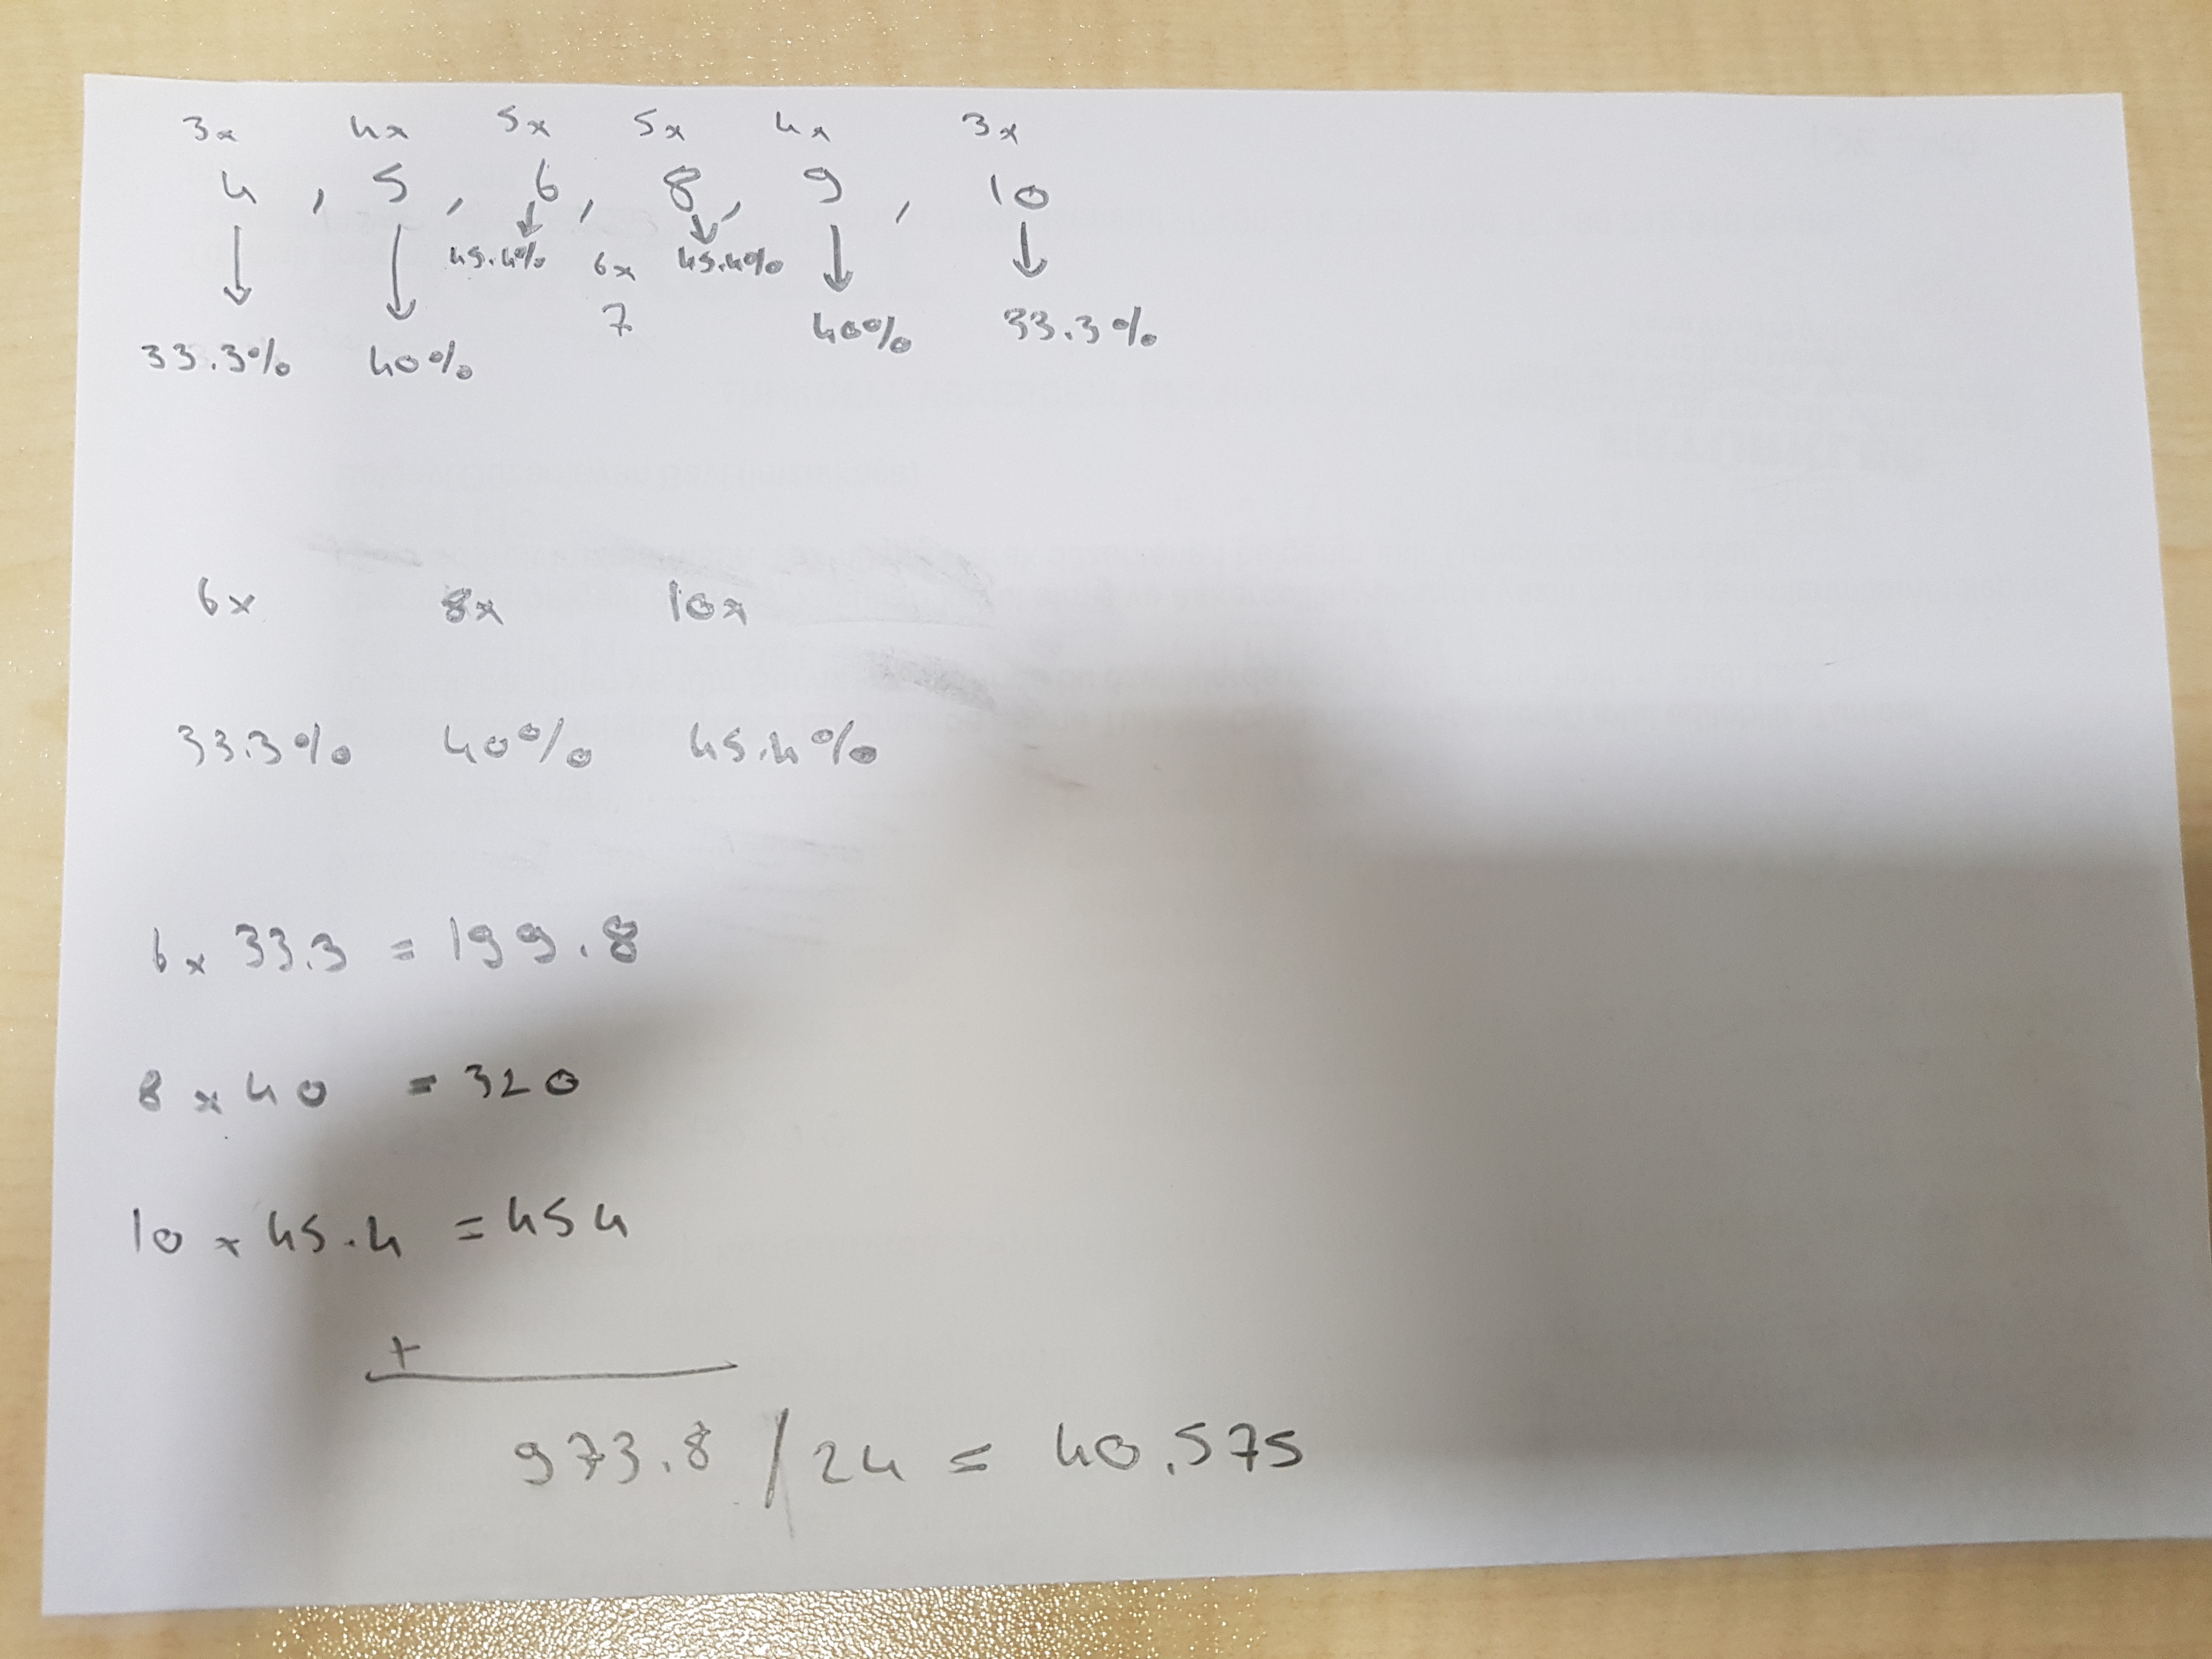 3x 4x 5x 5x 4x 3x
4 , 5 , 6 , 8 , 9 , 10
45.4% 6x 45.4%
7
33.3% 40% 40% 33.3%
6x 8x 10x
33.3% 40% 45.4%
6 x 33.3 = 199.8
8 x 40 = 320
10 x 45.4 = 454
+
973.8 / 24 = 40.575